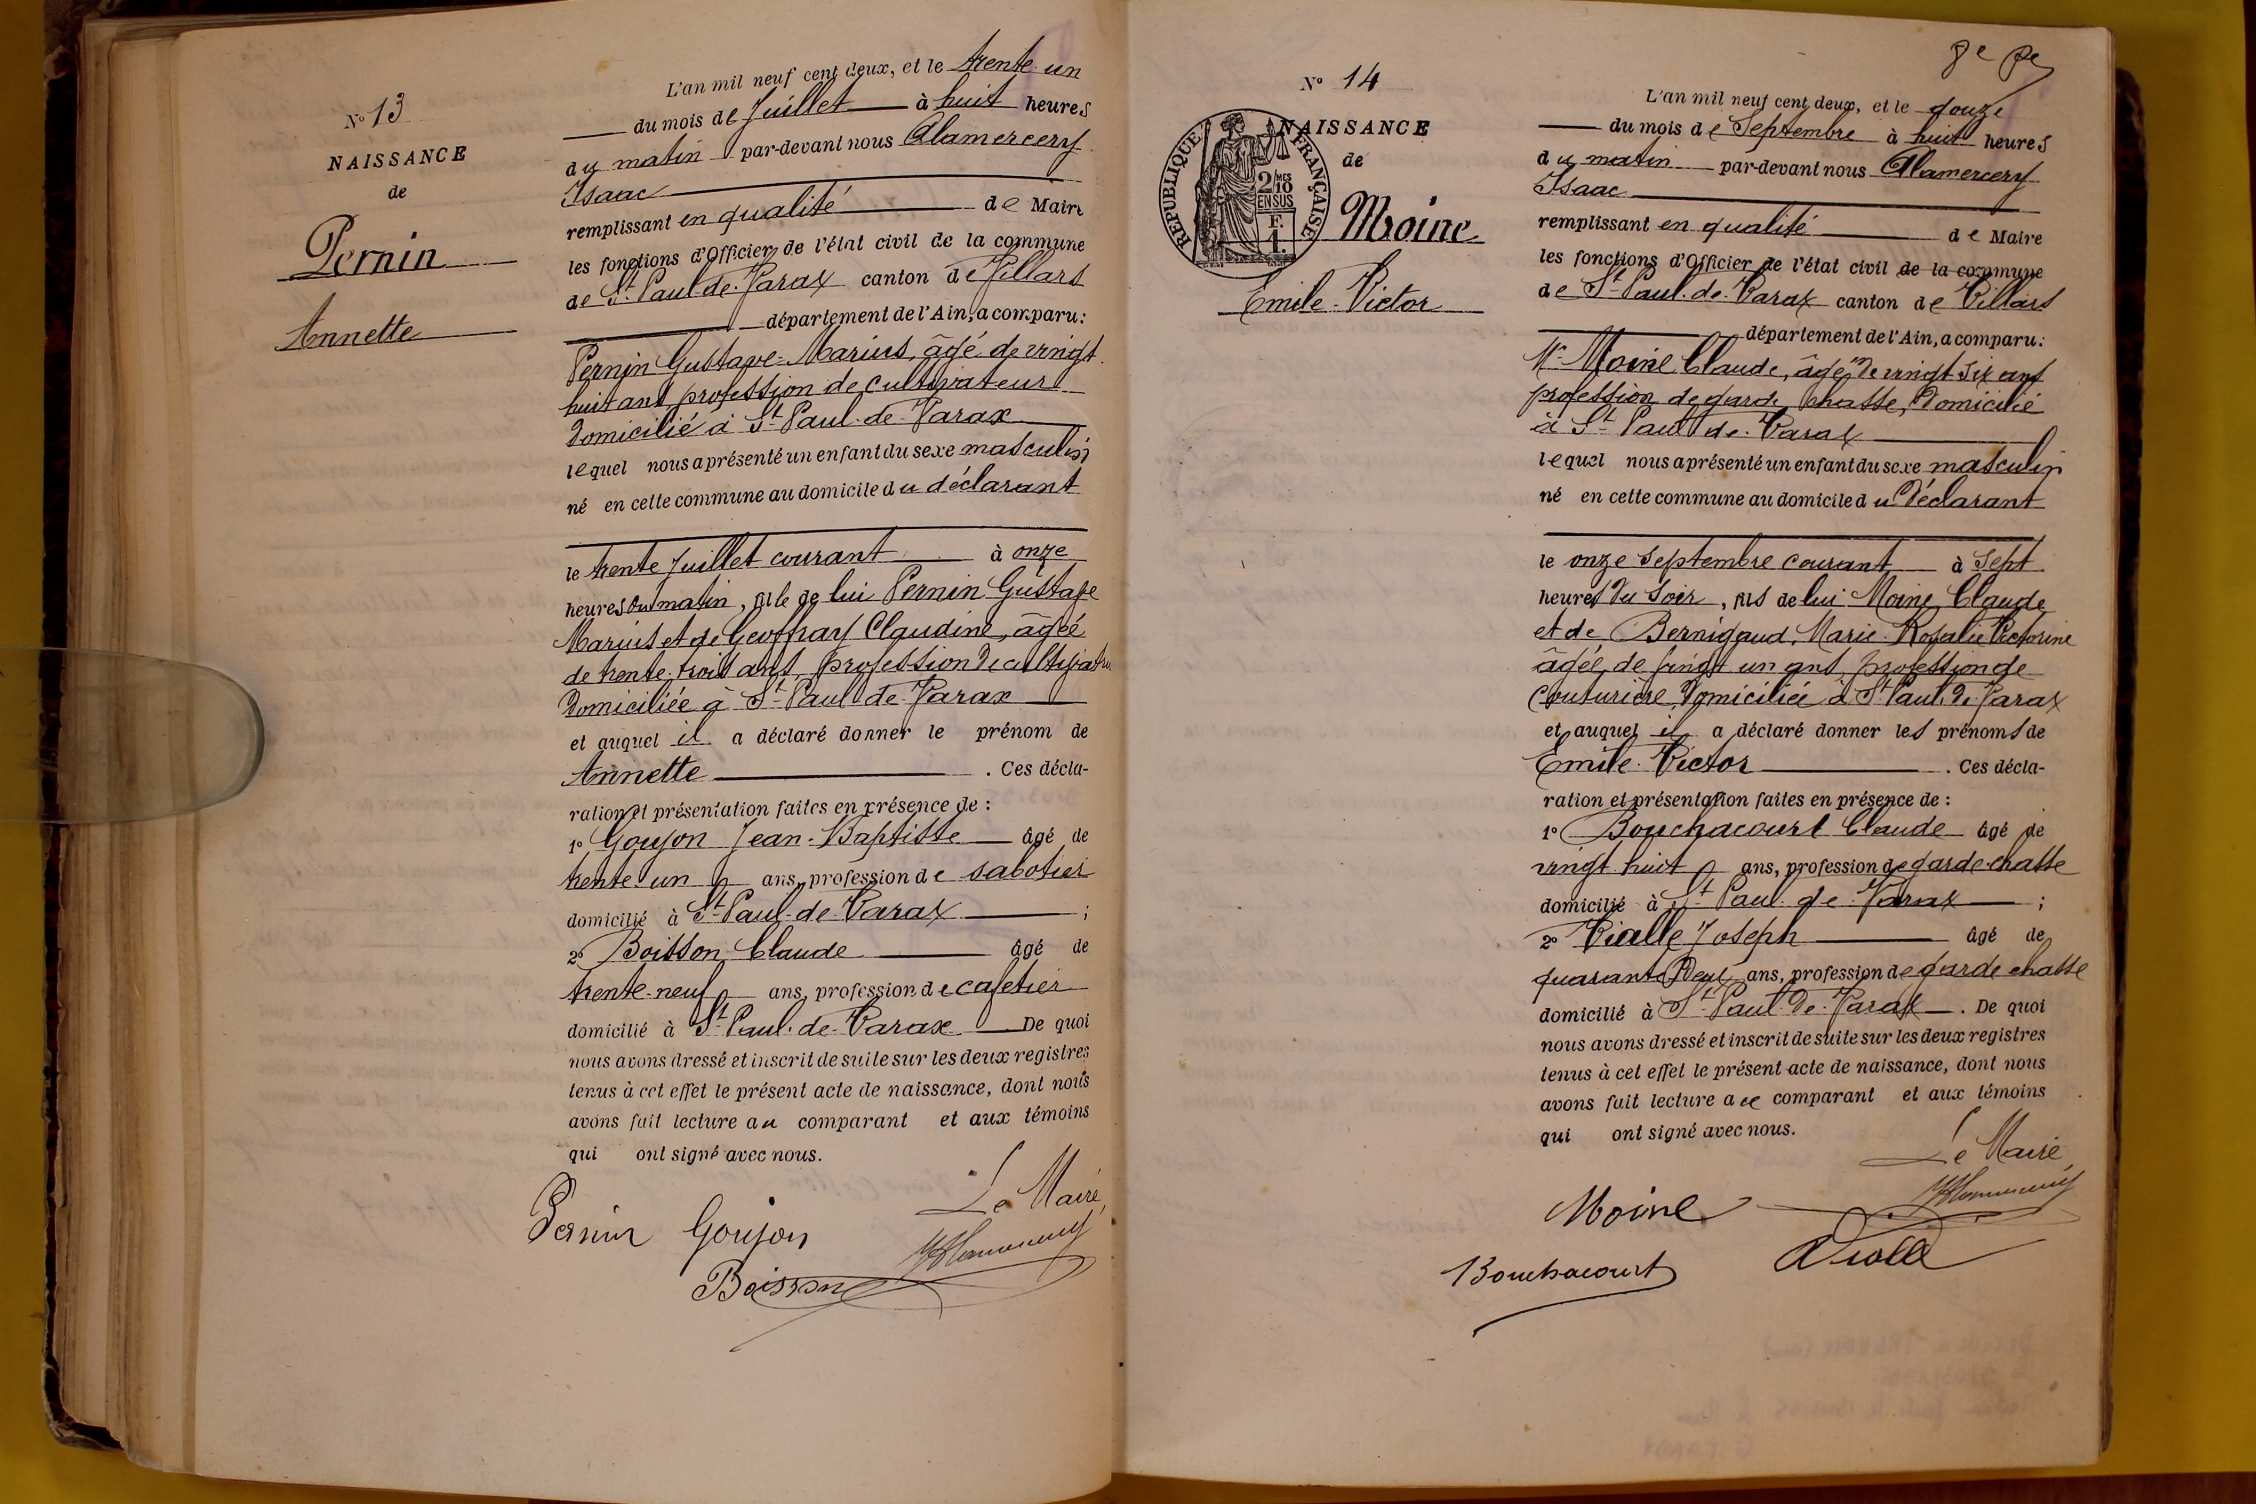 N° 13
NAISSANCE
de
Pernin
Annette
L'an mil neuf cent deux, et le trente un
du mois de Juillet à huit heures
du matin par-devant nous Alamercery
Isaac
remplissant en qualité de Maire
les fonctions d'Officier de l'état civil de la commune
de St Paul-de-Varax canton de Villars
département de l'Ain, a comparu:
Pernin Gustave-Marius, âgé de vingt
huit ans profession de cultivateur
domicilié à St Paul-de-Varax
lequel nous a présenté un enfant du sexe masculin
né en cette commune au domicile du déclarant
le trente Juillet courant à onze
heures du matin, fille de lui Pernin Gustave
Marius et de Geoffray Claudine, âgée
de trente-trois ans, profession de
domiciliée à St Paul-de-Varax
et auquel il a déclaré donner le prénom de
Annette . Ces décla-
ration et présentation faites en présence de :
1° Goujon Jean-Baptiste âgé de
trente-un ans, profession de sabotier
domicilié à St Paul-de-Varax ;
2° Boisson Claude âgé de
trente-neuf ans, profession de cafetier
domicilié à St Paul-de-Varax De quoi
nous avons dressé et inscrit de suite sur les deux registres
tenus à cet effet le présent acte de naissance, dont nous
avons fait lecture au comparant et aux témoins
qui ont signé avec nous.
Le Maire,
Pernin Goujon
Boisson
8e
N° 14
NAISSANCE
de
Moine
Emile-Victor
RÉPUBLIQUE FRANÇAISE
2/10MES
EN SUS
F.
1.
L'an mil neuf cent deux, et le douze
du mois de Septembre à huit heures
du matin par-devant nous Alamercery
Isaac
remplissant en qualité de Maire
les fonctions d'Officier de l'état civil de la commune
de St Paul-de-Varax canton de Villars
département de l'Ain, a comparu:
Mr Moine Claude, âgé de vingt six ans
profession de garde chasse, domicilié
à St Paul-de-Varax
lequel nous a présenté un enfant du sexe masculin
né en cette commune au domicile du déclarant
le onze septembre courant à sept
heures du soir, fils de lui Moine Claude
et de Bernigaud, Marie Rosalie Victorine
âgée de vingt un ans, profession de
couturière domiciliée à St Paul-de-Varax
et auquel il a déclaré donner les prénoms de
Emile-Victor . Ces décla-
ration et présentation faites en présence de :
1° Bouchacourt Claude âgé de
vingt huit ans, profession de garde-chasse
domicilié à St Paul-de-Varax ;
2° Vialle Joseph âgé de
quarante deux ans, profession de garde chasse
domicilié à St Paul-de-Varax . De quoi
nous avons dressé et inscrit de suite sur les deux registres
tenus à cet effet le présent acte de naissance, dont nous
avons fait lecture au comparant et aux témoins
qui ont signé avec nous.
Le Maire,
Moine
Bouchacourt